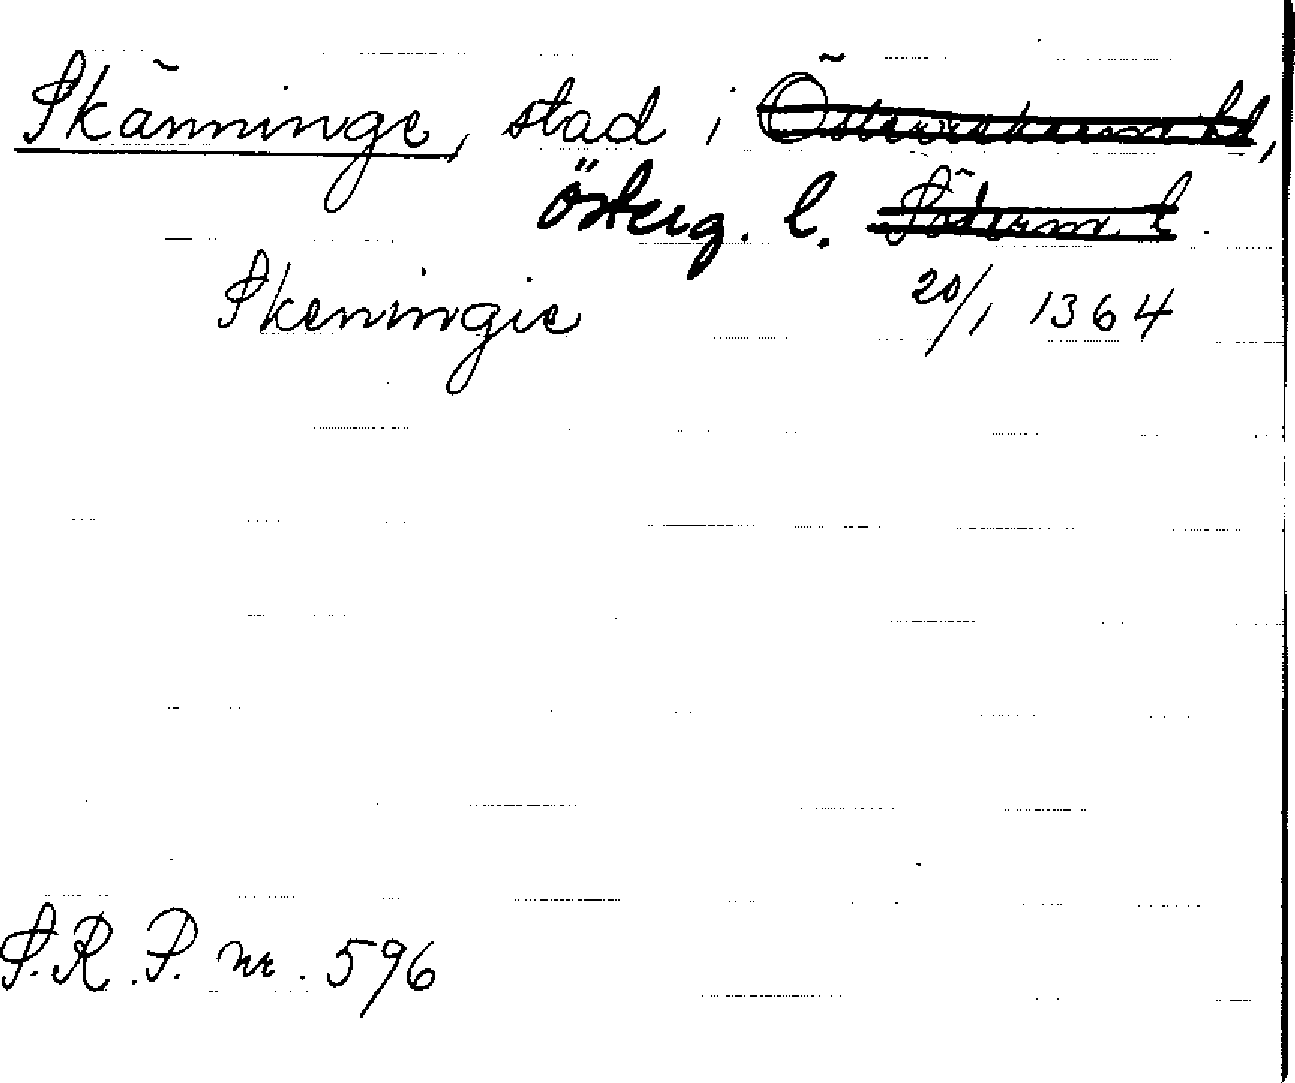 Skänninge, stad i Österrekarne hd,
österg. l. Söderm. l.
Skeningie 20/1 1364
S.R.P. nr. 596